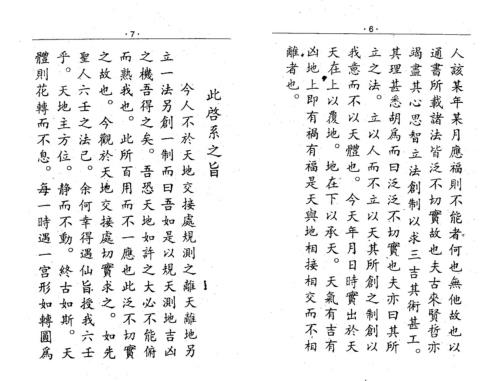 ·6·
人該某年某月應福則不能者何也無他故也以
通書所載諸法皆泛不切實故也夫古來賢哲亦
竭盡其心思智立法創制以求三吉其術甚工。
其理甚悉胡為而曰泛泛不切實也夫亦曰其所
立之法。立以人而不立以天其所創之制創以
我意而不以天體也。今天年月日時實出於天
天在上以覆地。地在下以承天。天氣有吉有
凶地上即有禍有福是天與地相接相交而不相
離者也。
·7·
此啓系之旨
今人不於天地交接處規測之離天離地另
立一法另創一制而曰吾如是以規天測地吉凶
之機吾得之矣。吾恐天地如許之大必不能俯
而熟我也。此所百用而不一應也此泛不切實
之故也。今觀於天地交接處切實求之。如先
聖人六壬之法已。余何幸得遇仙旨授我六壬
乎。天地主方位。靜而不動。終古如斯。天
體則花轉而不息。每一時遇一宮形如轉圓為